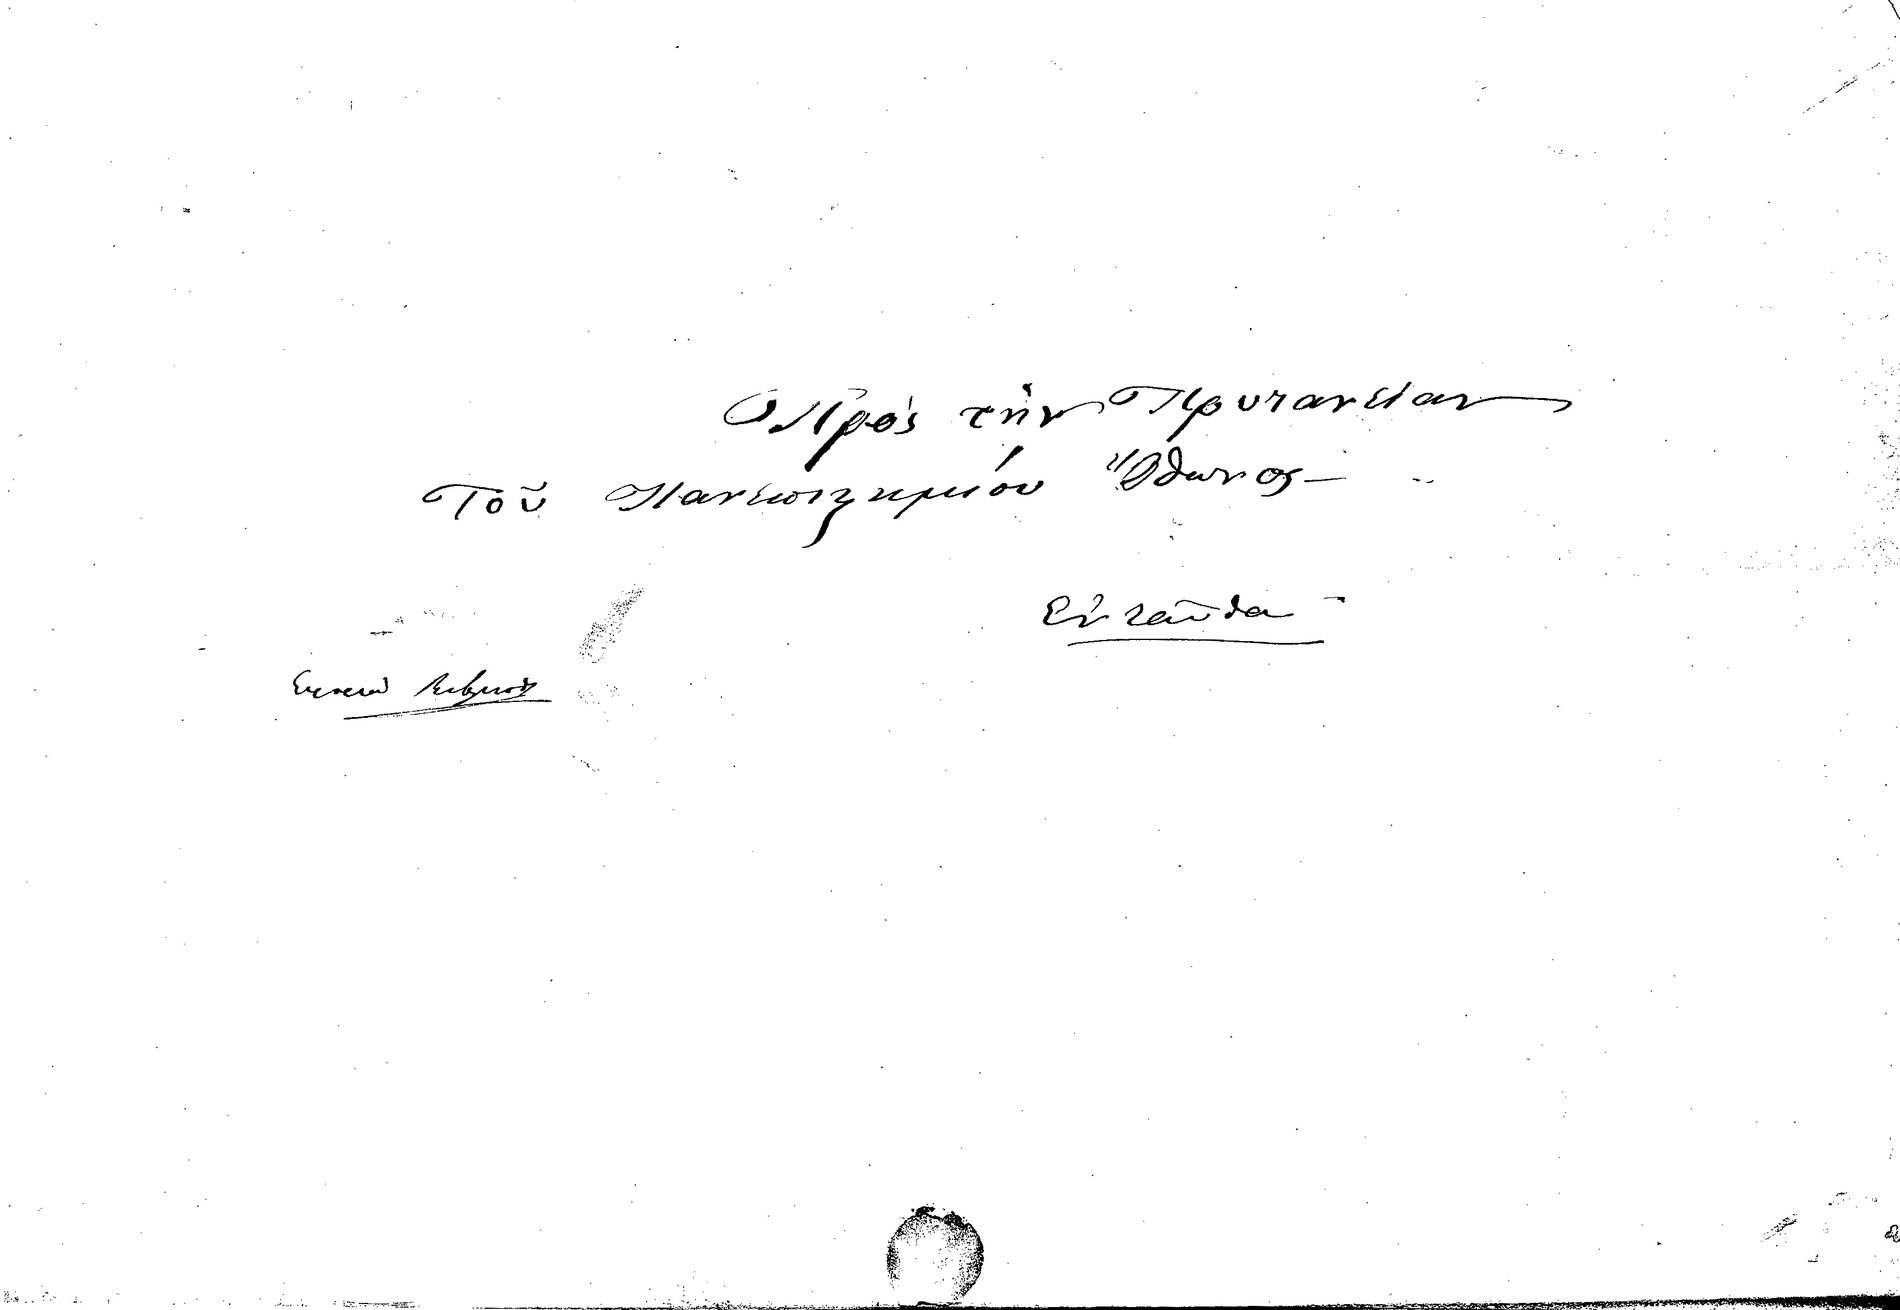 Πρὸς τὴν Πρυτανείαν
Τοῦ Πανεπιστημίου Ὄθωνος
Ἐνταῦθα